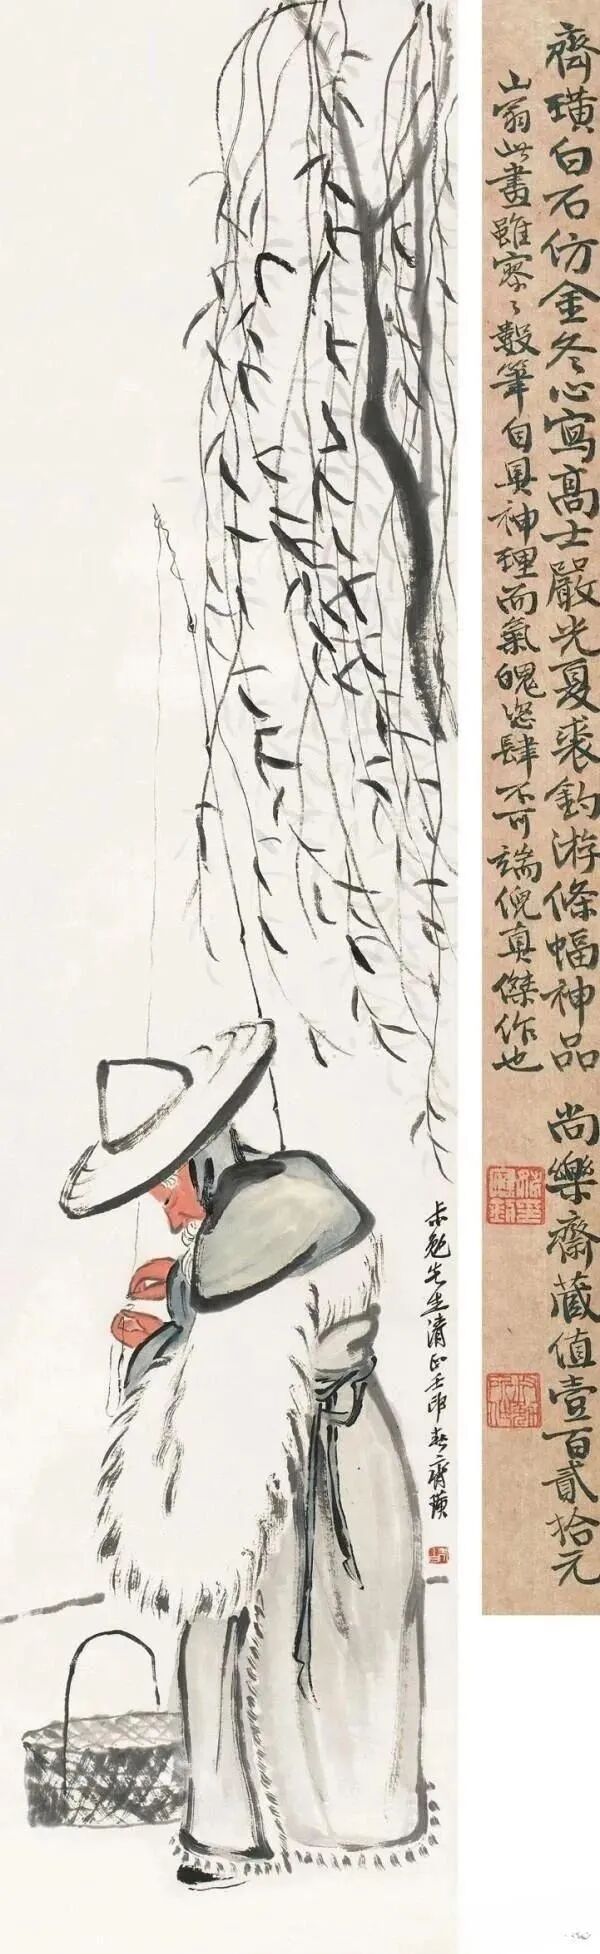 齊璜白石仿金冬心寫高士嚴光夏裘釣游條幅神品　尚樂齋藏值壹百貳拾元
山翁此畫雖寥々數筆自具神理而氣魄恣肆不可端倪真傑作也
先生清正壬卯春齊璜